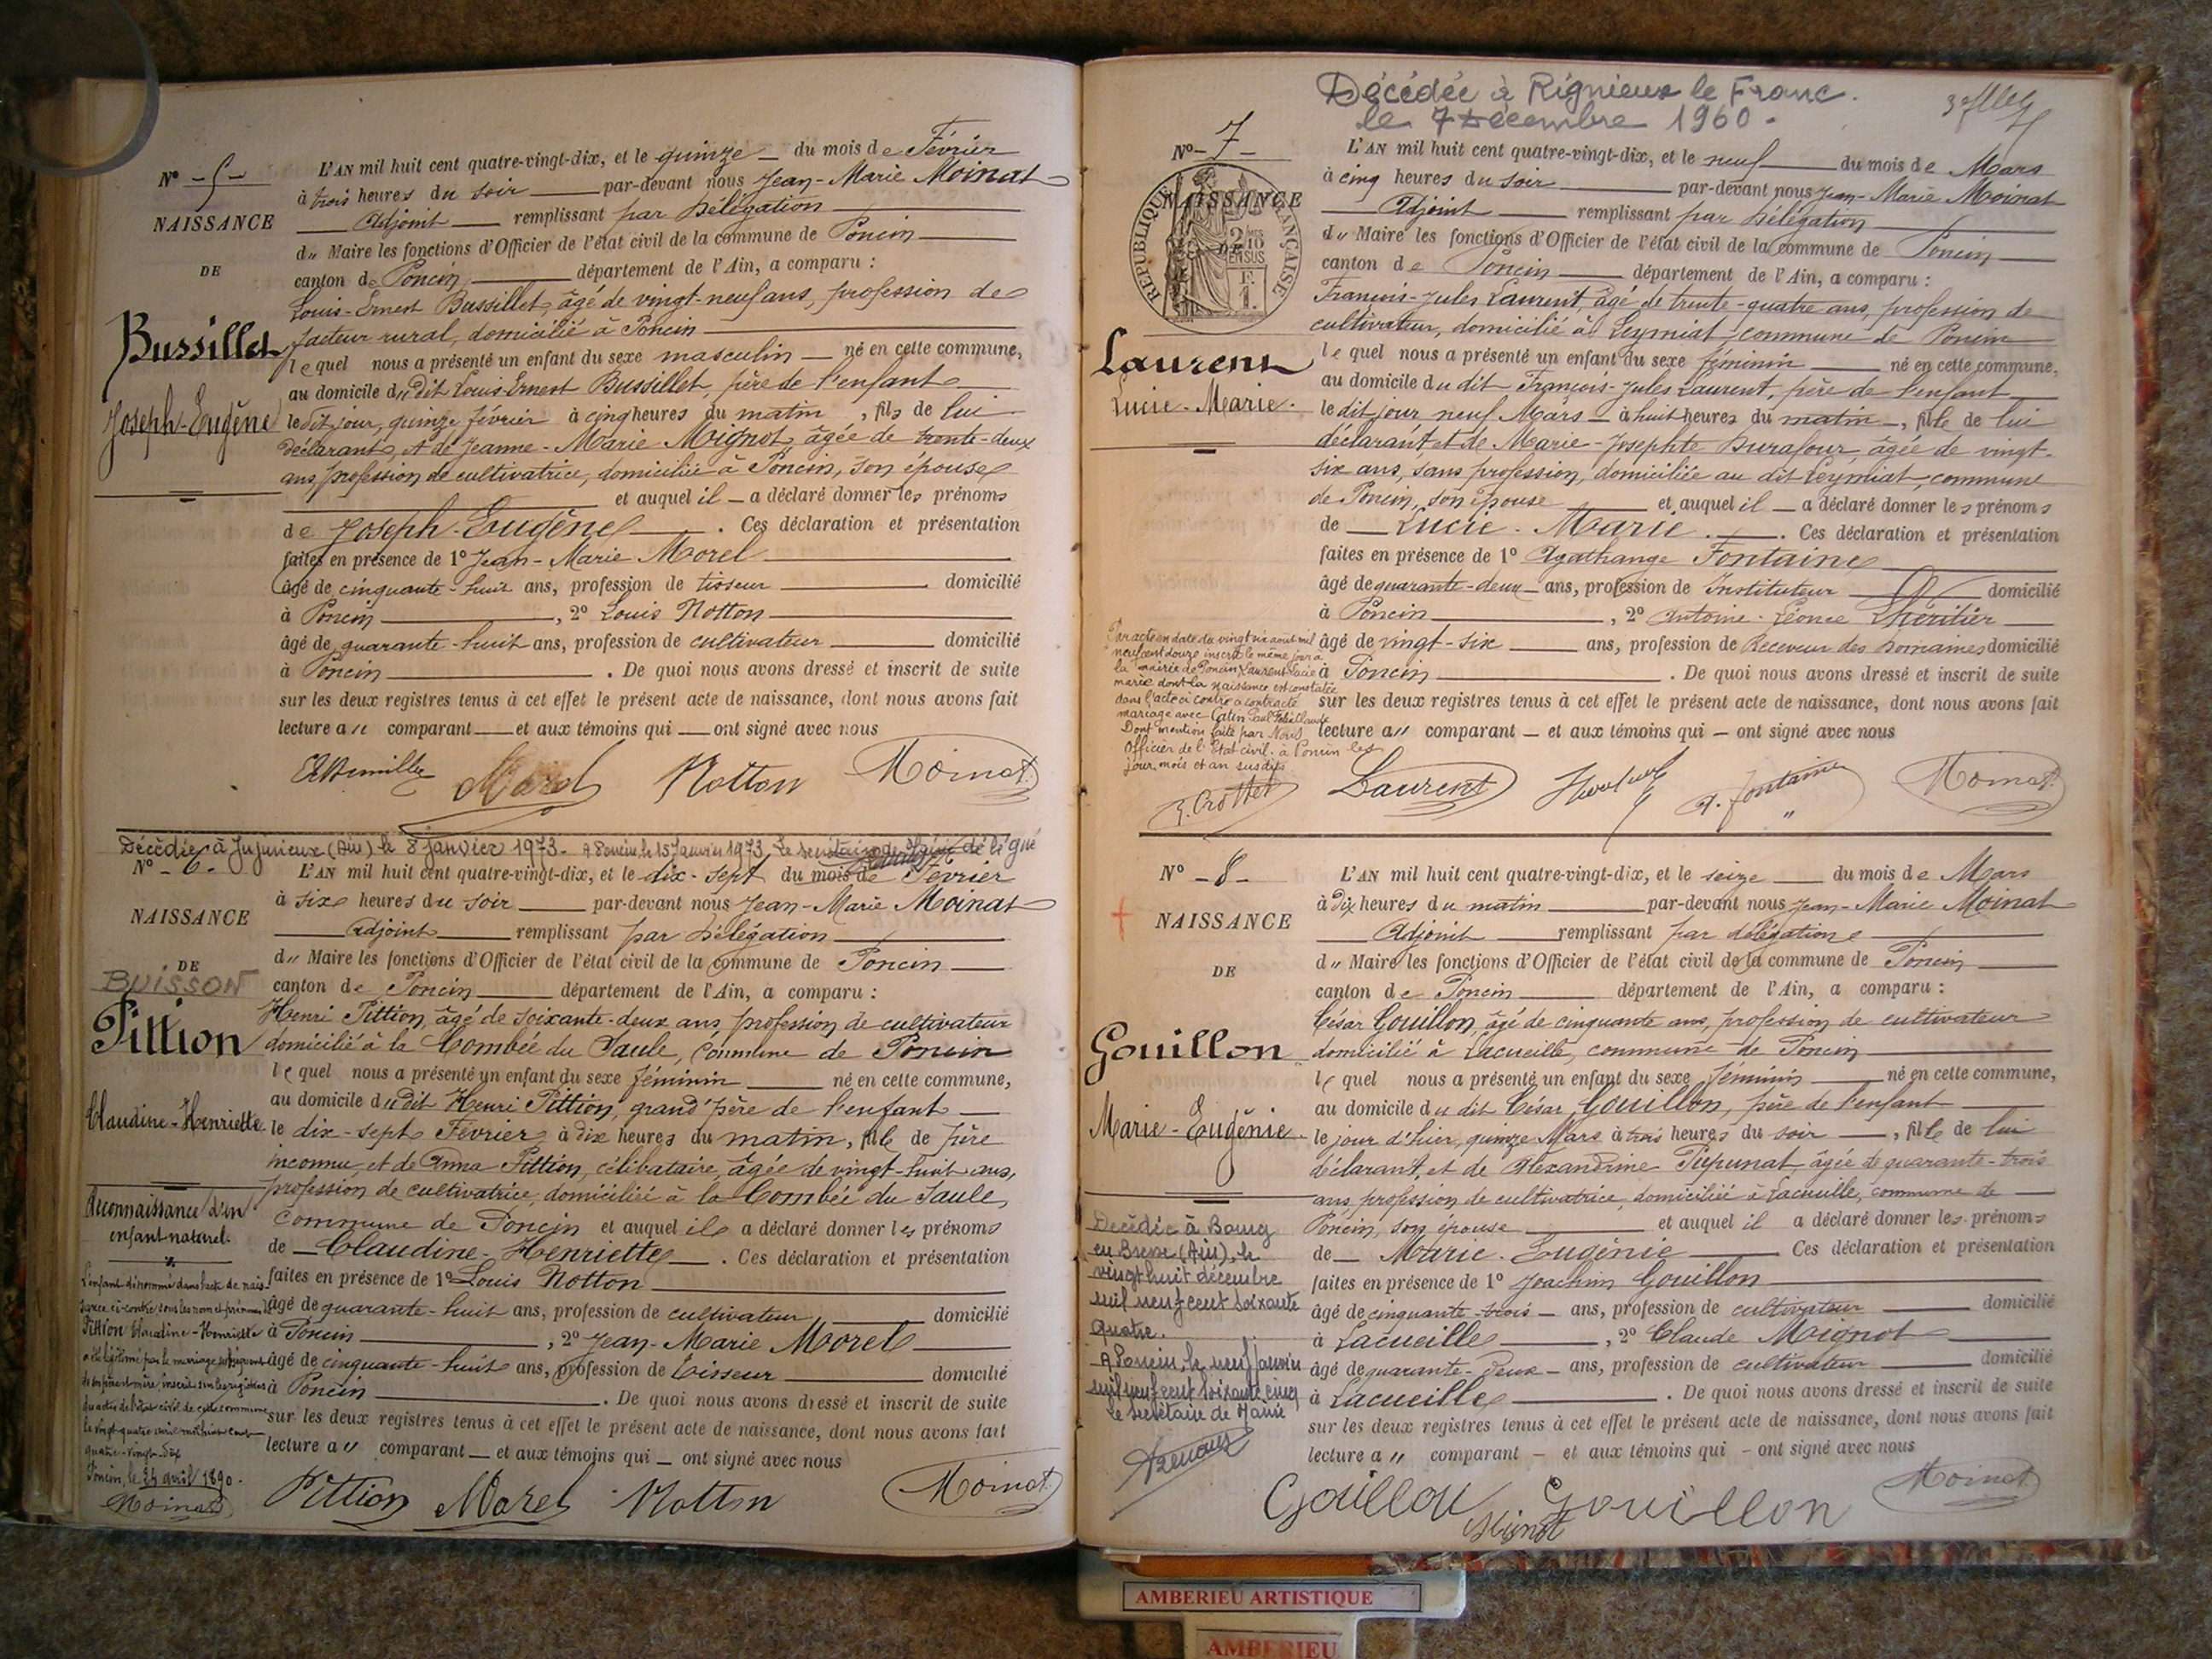 Nº - 5 -
NAISSANCE
DE
Bussillet
Joseph-Eugène
L'AN mil huit cent quatre-vingt-dix, et le quinze du mois de Février
à trois heures du soir par-devant nous Jean-Marie Moinat
Adjoint remplissant par Délégation
d" Maire les fonctions d'Officier de l'état civil de la commune de Poncin
canton de Poncin département de l'Ain, a comparu :
Louis-Ernest Bussillet, âgé de vingt-neuf ans, profession de
facteur rural, domicilié à Poncin
lequel nous a présenté un enfant du sexe masculin né en cette commune,
au domicile du dit Louis Ernest Bussillet, père de l'enfant
le dit jour, quinze février à cinq heures du matin, fils de lui
déclarant, et de Jeanne-Marie Mignot, âgée de trente-deux
ans, profession de cultivatrice, domiciliée à Poncin, son épouse
et auquel il a déclaré donner les prénoms
de Joseph-Eugène. Ces déclaration et présentation
faites en présence de 1º Jean-Marie Morel
âgé de cinquante-huit ans, profession de tisseur domicilié
à Poncin, 2º Louis Notton
âgé de quarante-huit ans, profession de cultivateur domicilié
à Poncin. De quoi nous avons dressé et inscrit de suite
sur les deux registres tenus à cet effet le présent acte de naissance, dont nous avons fait
lecture a" comparant et aux témoins qui ont signé avec nous
Morel Notton Moinat
Décédée à Jujurieux (Ain) le 8 janvier 1973. A Poncin, le 15 Janvier 1973 Le secrétaire de Mairie délégué
Nº - 6 -
NAISSANCE
DE
BUISSON
Pittion
Claudine-Henriette
Reconnaissance d'un
enfant naturel.
L'enfant dénommé dans l'acte de nais-
sance ci-contre sous les nom et prénoms
Pittion Claudine-Henriette
a été légitimé par le mariage
de ses père et mère, inscrit sur les registres
des actes de l'état civil de cette commune
le vingt-quatre avril mil huit cent
quatre-vingt-dix
Poncin, le 24 avril 1890.
Moinat
L'AN mil huit cent quatre-vingt-dix, et le dix-sept du mois de Février
à six heures du soir par-devant nous Jean-Marie Moinat
Adjoint remplissant par Délégation
d" Maire les fonctions d'Officier de l'état civil de la commune de Poncin
canton de Poncin département de l'Ain, a comparu :
Henri Pittion, âgé de soixante-deux ans, profession de cultivateur
domicilié à la Combée du Saule, Commune de Poncin
lequel nous a présenté un enfant du sexe féminin né en cette commune,
au domicile du dit Henri Pittion, grand'père de l'enfant
le dix-sept Février à dix heures du matin, fille de père
inconnu, et de Anna Pittion, célibataire, âgée de vingt-huit ans,
profession de cultivatrice, domiciliée à la Combée du Saule,
Commune de Poncin et auquel il a déclaré donner les prénoms
de Claudine-Henriette. Ces déclaration et présentation
faites en présence de 1º Louis Notton
âgé de quarante-huit ans, profession de cultivateur domicilié
à Poncin, 2º Jean-Marie Morel
âgé de cinquante-huit ans, profession de tisseur domicilié
à Poncin. De quoi nous avons dressé et inscrit de suite
sur les deux registres tenus à cet effet le présent acte de naissance, dont nous avons fait
lecture a" comparant et aux témoins qui ont signé avec nous
Pittion Morel Notton Moinat
Décédée à Rignieux le Franc.
le 7 Décembre 1960.
Nº - 7 -
NAISSANCE
DE
RÉPUBLIQUE FRANÇAISE
Laurent
Lucie-Marie.
Par acte en date du vingt six août mil
neuf cent douze inscrit le même jour à
la mairie de Poncin Laurent Lucie
marie dont la naissance est constatée
dans l'acte ci contre a contracté
mariage avec
Dont mention faite par Nous
Officier de l'Etat civil. à Poncin les
jour, mois et an susdits
L'AN mil huit cent quatre-vingt-dix, et le neuf du mois de Mars
à cinq heures du soir par-devant nous Jean-Marie Moinat
Adjoint remplissant par Délégation
d" Maire les fonctions d'Officier de l'état civil de la commune de Poncin
canton de Poncin département de l'Ain, a comparu :
François-Jules Laurent, âgé de trente-quatre ans, profession de
cultivateur, domicilié à Leymiat, commune de Poncin
lequel nous a présenté un enfant du sexe féminin né en cette commune,
au domicile du dit François-Jules Laurent, père de l'enfant
le dit jour neuf Mars à huit heures du matin, fille de lui
déclarant, et de Marie-Josephte Durafour, âgée de vingt-
six ans, sans profession, domiciliée au dit Leymiat, commune
de Poncin, son épouse et auquel il a déclaré donner les prénoms
de Lucie-Marie. Ces déclaration et présentation
faites en présence de 1º Agathange Fontaine
âgé de quarante-deux ans, profession de Instituteur domicilié
à Poncin, 2º Antoine-Léonce Lhéritier
âgé de vingt-six ans, profession de Receveur des Domaines domicilié
à Poncin. De quoi nous avons dressé et inscrit de suite
sur les deux registres tenus à cet effet le présent acte de naissance, dont nous avons fait
lecture a" comparant et aux témoins qui ont signé avec nous
Laurent A. Fontaine Moinat
Nº - 8 -
NAISSANCE
DE
Gouillon
Marie-Eugénie.
Décédée à Bourg
en Bresse (Ain), le
vingt huit décembre
mil neuf cent soixante
quatre.
A Poncin, le neuf janvier
mil neuf cent soixante cinq
Le secrétaire de Mairie
L'AN mil huit cent quatre-vingt-dix, et le seize du mois de Mars
à dix heures du matin par-devant nous Jean-Marie Moinat
Adjoint remplissant par délégation
d" Maire les fonctions d'Officier de l'état civil de la commune de Poncin
canton de Poncin département de l'Ain, a comparu :
César Gouillon, âgé de cinquante ans, profession de cultivateur
domicilié à Lacueille, commune de Poncin
lequel nous a présenté un enfant du sexe féminin né en cette commune,
au domicile du dit César Gouillon, père de l'enfant
le jour d'hier, quinze Mars à trois heures du soir, fille de lui
déclarant, et de Alexandrine âgée de quarante-trois
ans, profession de cultivatrice, domiciliée à Lacueille, commune de
Poncin, son épouse et auquel il a déclaré donner les prénoms
de Marie-Eugénie Ces déclaration et présentation
faites en présence de 1º Joachim Gouillon
âgé de cinquante-trois ans, profession de cultivateur domicilié
à Lacueille, 2º Claude Mignot
âgé de quarante-deux ans, profession de cultivateur domicilié
à Lacueille. De quoi nous avons dressé et inscrit de suite
sur les deux registres tenus à cet effet le présent acte de naissance, dont nous avons fait
lecture a" comparant et aux témoins qui ont signé avec nous
Gouillon Gouillon Moinat
Mignot
AMBERIEU ARTISTIQUE
AMBERIEU